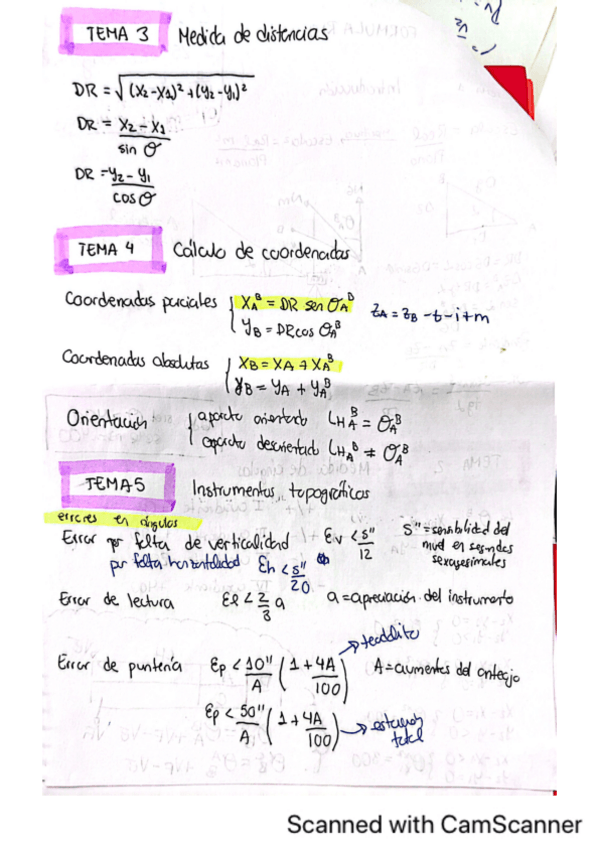 TEMA 3 Medida de distancias
DR = √(x₂-x₁)² + (y₂-y₁)²
DR = x₂-x₁ / sin θ
DR = y₂-y₁ / cos θ
TEMA 4 Cálculo de coordenadas
Coordenadas parciales { X_A^B = DR sen θ_A^B
Y_B = DR cos θ_A^B
z_A = z_B - t - i + m
Coordenadas absolutas { X_B = X_A + X_A^B
Y_B = Y_A + Y_A^B
Orientación { aparato orientado LH_A^B = θ_A^B
aparato desorientado LH_A^B ≠ θ_A^B
TEMA 5 Instrumentos topográficos
errores en ángulos
Error por falta de verticalidad Ev < s" / 12
s" = sensibilidad del
nivel en segundos
sexagesimales
por falta horizontalidad Eh < s" / 20
Error de lectura El < 2/3 a a = apreciación del instrumento
Error de puntería Ep < 10" / A (1 + 4A / 100) → teodolito
A = aumentos del anteojo
Ep < 50" / A (1 + 4A / 100) → estación
total
Scanned with CamScanner